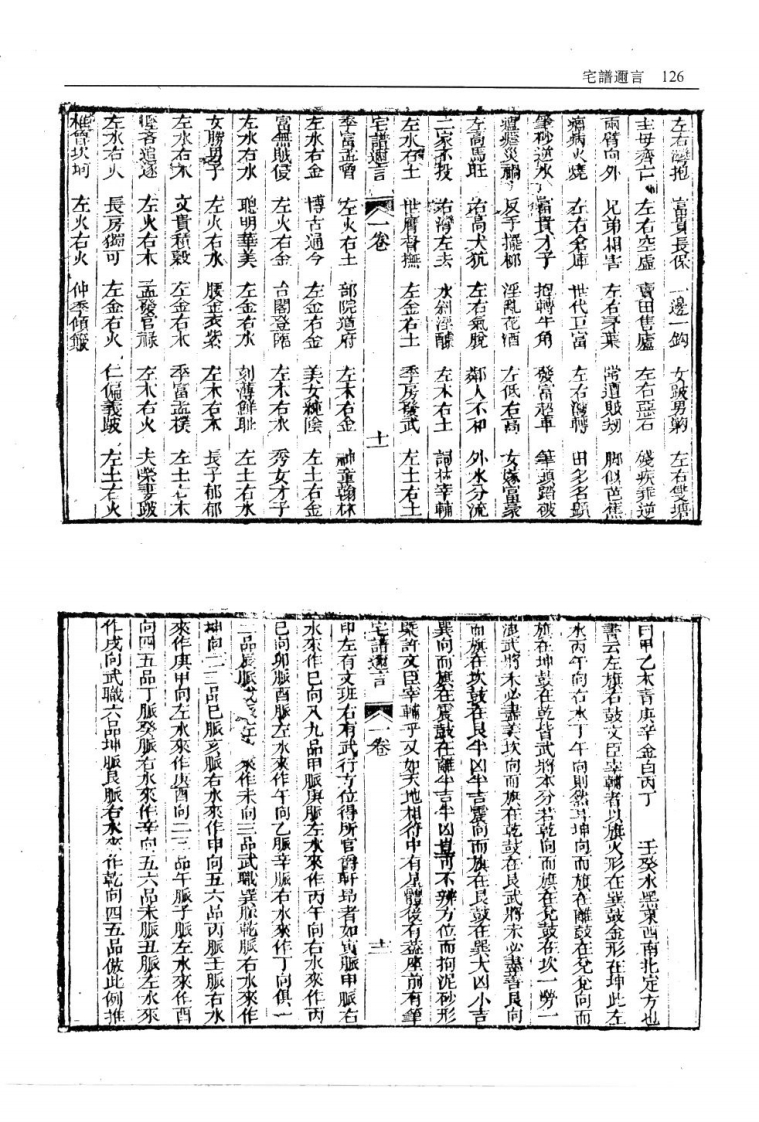 宅譜邇言 126
左右灣抱 富貴長保 一邊一鈎 女跛男駒 左右雙塘
主母齊亡 左右空虛 賣田售廬 左右惡石 殘疾乖逆
兩臂向外 兄弟相害 左右芽葉 常遭賊刼 脚似芭蕉
瘟病火燒 左右倉庫 世代巨富 左右灣轉 田多名顯
筆砂逆水 富貴才子 抱轉牛角 發富超羣 筆頭踏破
瘟瘟災禍 反手擺柳 淫亂花酒 左低右高 女嫁富豪
左高馬旺 右高犬狁 左右氣脫 鄰人不和 外水分流
二家不投 右灣左去 水斜淫醜 左木右土 詞林宰輔
左水右土 世胃督撫 左金右土 季房發武 左土右土
宅譜邇言 一卷 十
季富孟曾 左火右土 部院道府 左木右金 神童翰林
左水右金 博古通今 左金右金 美女純陰 左土右金
富無賊侵 左火右金 台閣登臨 左木右水 秀女才子
左水右水 聰明華美 左金右水 刻薄鮮耻 左土右水
女勝男子 左火右水 腰金衣紫 左木右木 長子郁郁
左水右木 文貴積穀 左金右木 季富孟樸 左土右木
左火右木 孟發官祿 左木右火 夫榮妻跛
左水右火 長房獨可 左金右火 仁偏義跛 左土右火
左火右火 仲季傾
曰甲乙木青庚辛金白丙丁 壬癸水黑東西南北定方也
書云左旗右鼓文臣宰輔者以旗火形在巽鼓金形在坤此左
水丙午向右水丁午向則然耳坤向而旗在離鼓在兌兌向而
旗在坤鼓在乾皆武將本分若乾向而旗在兌鼓在坎一勞一
武將未必盡美坎向而旗在乾鼓在艮武將未必盡善艮向
而旗在坎鼓在艮半凶半吉震向而旗在艮鼓在巽大凶小吉
巽向而旗在震鼓在離半吉半凶豈可不辨方位而拘泥砂形
槩許文臣宰輔乎又如天地相待中有星體後有蓋座前有筆
宅譜邇言 一卷 十一
印左有文班右有武行方位得所官爵軒昻者如寅脈申脈右
水來作巳向八九品甲脈庚脈左水來作丙午向右水來作丙
巳向卯脈酉脈左水來作午向乙脈辛脈右水來作丁向俱一
二品辰脈戌脈左水來作未向三品武職巽脈乾脈右水來作
坤向二三品巳脈亥脈右水來作申向五六品丙脈壬脈右水
來作庚甲向左水來作庚酉向二三品午脈子脈左水來作酉
向四五品丁脈癸脈右水來作辛向五六品未脈丑脈左水來
作戌向武職六品坤脈艮脈右水來作乾向四五品倣此例推